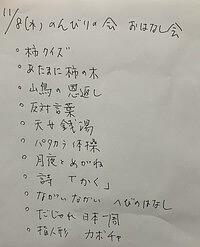 11/8(水) のんびりの会 おはなし会
。柿クイズ
。あたまに柿の木
。山鳥の恩返し
。反対言葉
。天女銭湯
。パタカラ体操
。月夜とめがね
。詩 「かく」
。ながいながい へびのはなし
。だじゃれ 日本一周
。指人形 カボチャ